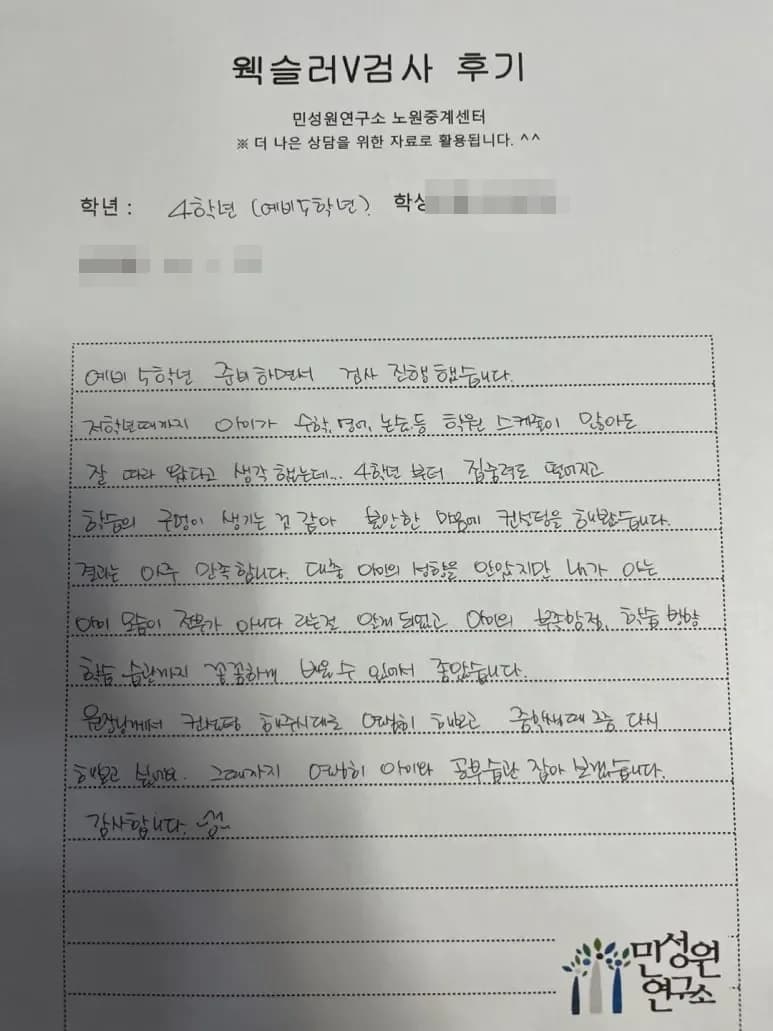 웩슬러V검사 후기
민성원연구소 노원중계센터
※ 더 나은 상담을 위한 자료로 활용됩니다. ^^
학년 : 4학년 (예비5학년). 학생
예비 5학년 준비하면서 검사 진행했습니다.
저학년때까지 아이가 수학, 영어, 논술 등 학원 스케줄이 많아도
잘 따라 왔다고 생각했는데... 4학년부터 집중력도 떨어지고
학습의 구멍이 생기는 것 같아 불안한 마음에 컨설팅을 해봤습니다.
결과는 아주 만족합니다. 대충 아이의 성향을 안았지만 내가 아는
아이 모습이 전부가 아니다 라는걸 알게 되었고 아이의 부족한점, 학습 방향
학습 습관까지 꼼꼼하게 배울 수 있어서 좋았습니다.
원장님께서 컨설팅 해주신대로 열심히 해보고 중학생때 쯤 다시
해보고 싶네요. 그때까지 열심히 아이와 공부습관 잡아 보겠습니다.
감사합니다.
민성원
연구소